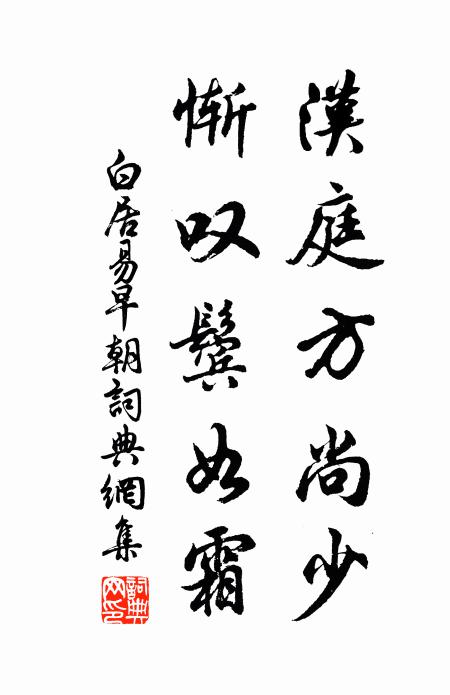 漢庭方尚少
惭叹鬓如霜
白居易早朝詞典網集
詞典
网印